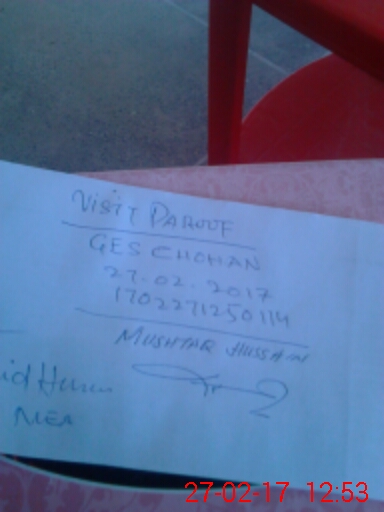 VISIT PAROUF
GES CHOHAN
27.02.2017
1702271250114
MUSHTAQ HUSSAIN
MEA
27-02-17 12:53